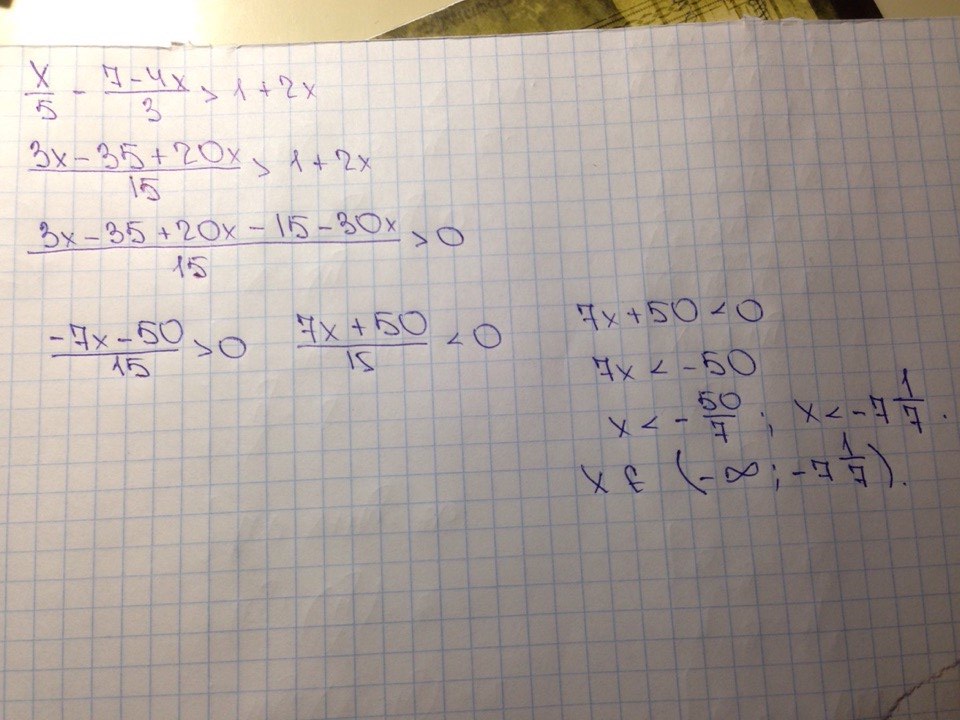 x/5 - (7-4x)/3 > 1+2x
(3x-35+20x)/15 > 1+2x
(3x-35+20x-15-30x)/15 > 0
(-7x-50)/15 > 0   (7x+50)/15 < 0
7x+50 < 0
7x < -50
x < -50/7 ; x < -7 1/7.
x ∈ (-∞; -7 1/7).